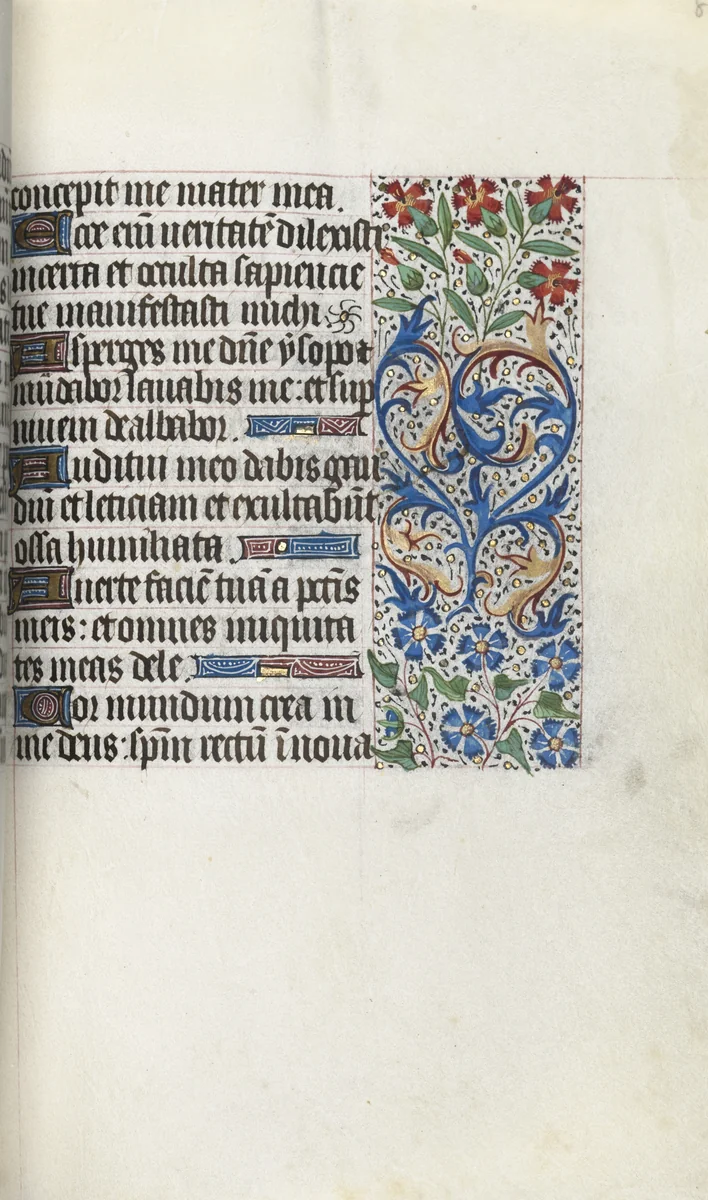 concepit me mater mea.
Ecce eni᷑ ueritatē dilexisti
incerta et occulta sapiencie
tue manifestasti michi
Asperges me dñe ysopo et
mūdabor lauabis me: et sup
niuem dealbabor.
Auditui meo dabis gau
diū et leticiam et exultabūt
ossa humiliata.
Auerte faciē tuā a pctīs
meis: et omnes iniquita
tes meas dele.
Cor mundum crea in
me deus: spīn rectū īnoua